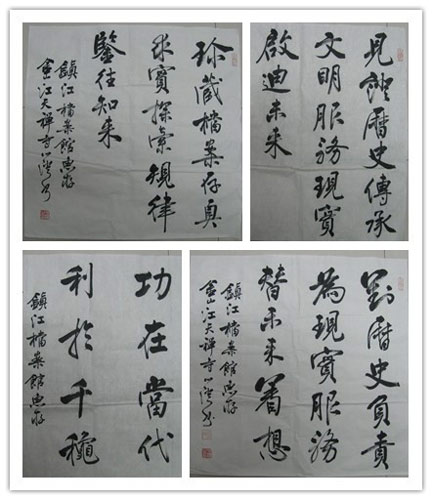 珍藏檔案存真
求實探索規律
鑒往知来
鎮江檔案館惠存
金江天禅寺心澄书
見證曆史傳承
文明服務現實
啟迪未来
功在當代
利於千龝
鎮江檔案館惠存
對曆史負責
為現實服務
替未来著想
鎮江檔案館惠存
金山江天禅寺心澄书